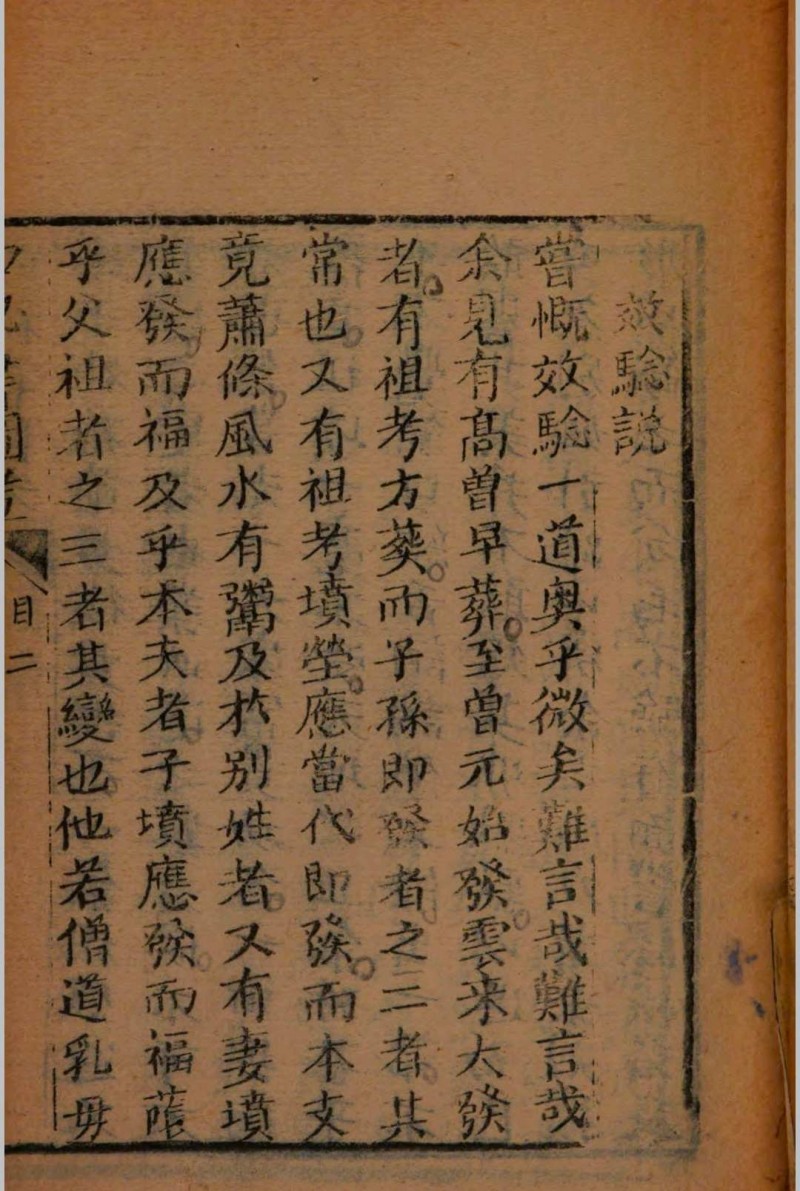 效驗說
嘗慨效驗一道奥乎微矣難言哉難言哉
余見有髙曽早葬至曽元始發雲来大發
者有祖考方葬而子孫即發者之二者其
常也又有祖考墳塋應當代即發而本支
竟蕭條風水有鬻及於别姓者又有妻墳
應發而福及乎本夫者子墳應發而福蔭
乎父祖者之三者其變也他若僧道乳毋
目二